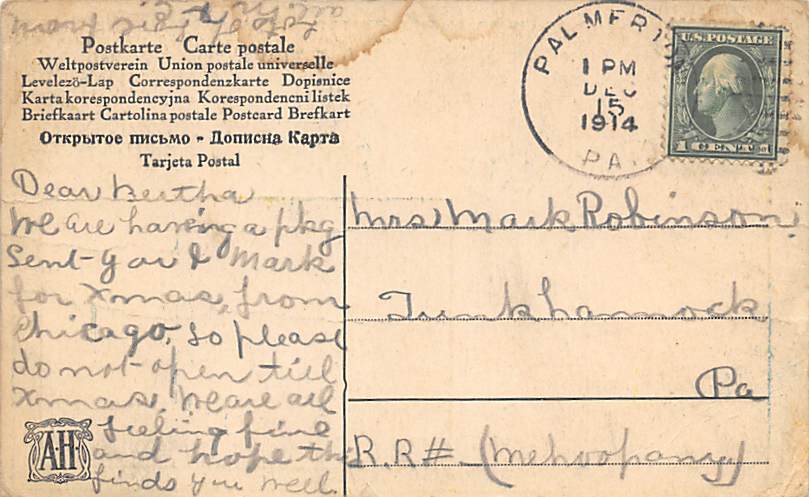 Lots of
all
Postkarte Carte postale
Weltpostverein Union postale universelle
Levelező-Lap Correspondenzkarte Dopisnice
Karta korespondencyjna Korespondencni listek
Briefkaart Cartolina postale Postcard Brefkart
Открытое письмо - Дописна Карта
Tarjeta Postal
PALMERTON
1 PM
DEC
15
1914
PA.
U.S. POSTAGE
1 CENT 1
Dear Bertha
We are having a pkg
Sent-you & Mark
for Xmas, from
Chicago. So please
do not-open till
Xmas. We are all
feeling fine
and hope this
finds you well.
AH
Mrs Mark Robinson.
Tunkhannock
Pa
R.R#. (Mehoopany)